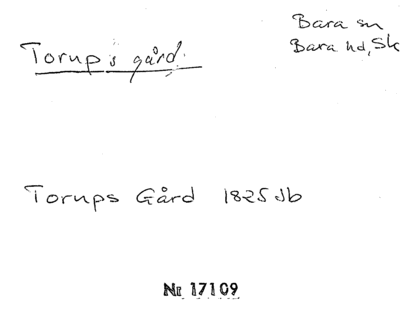 Bara sn
Torups gård.
Bara hd, Sk
Torups Gård 1825 Jb
Nr 17109